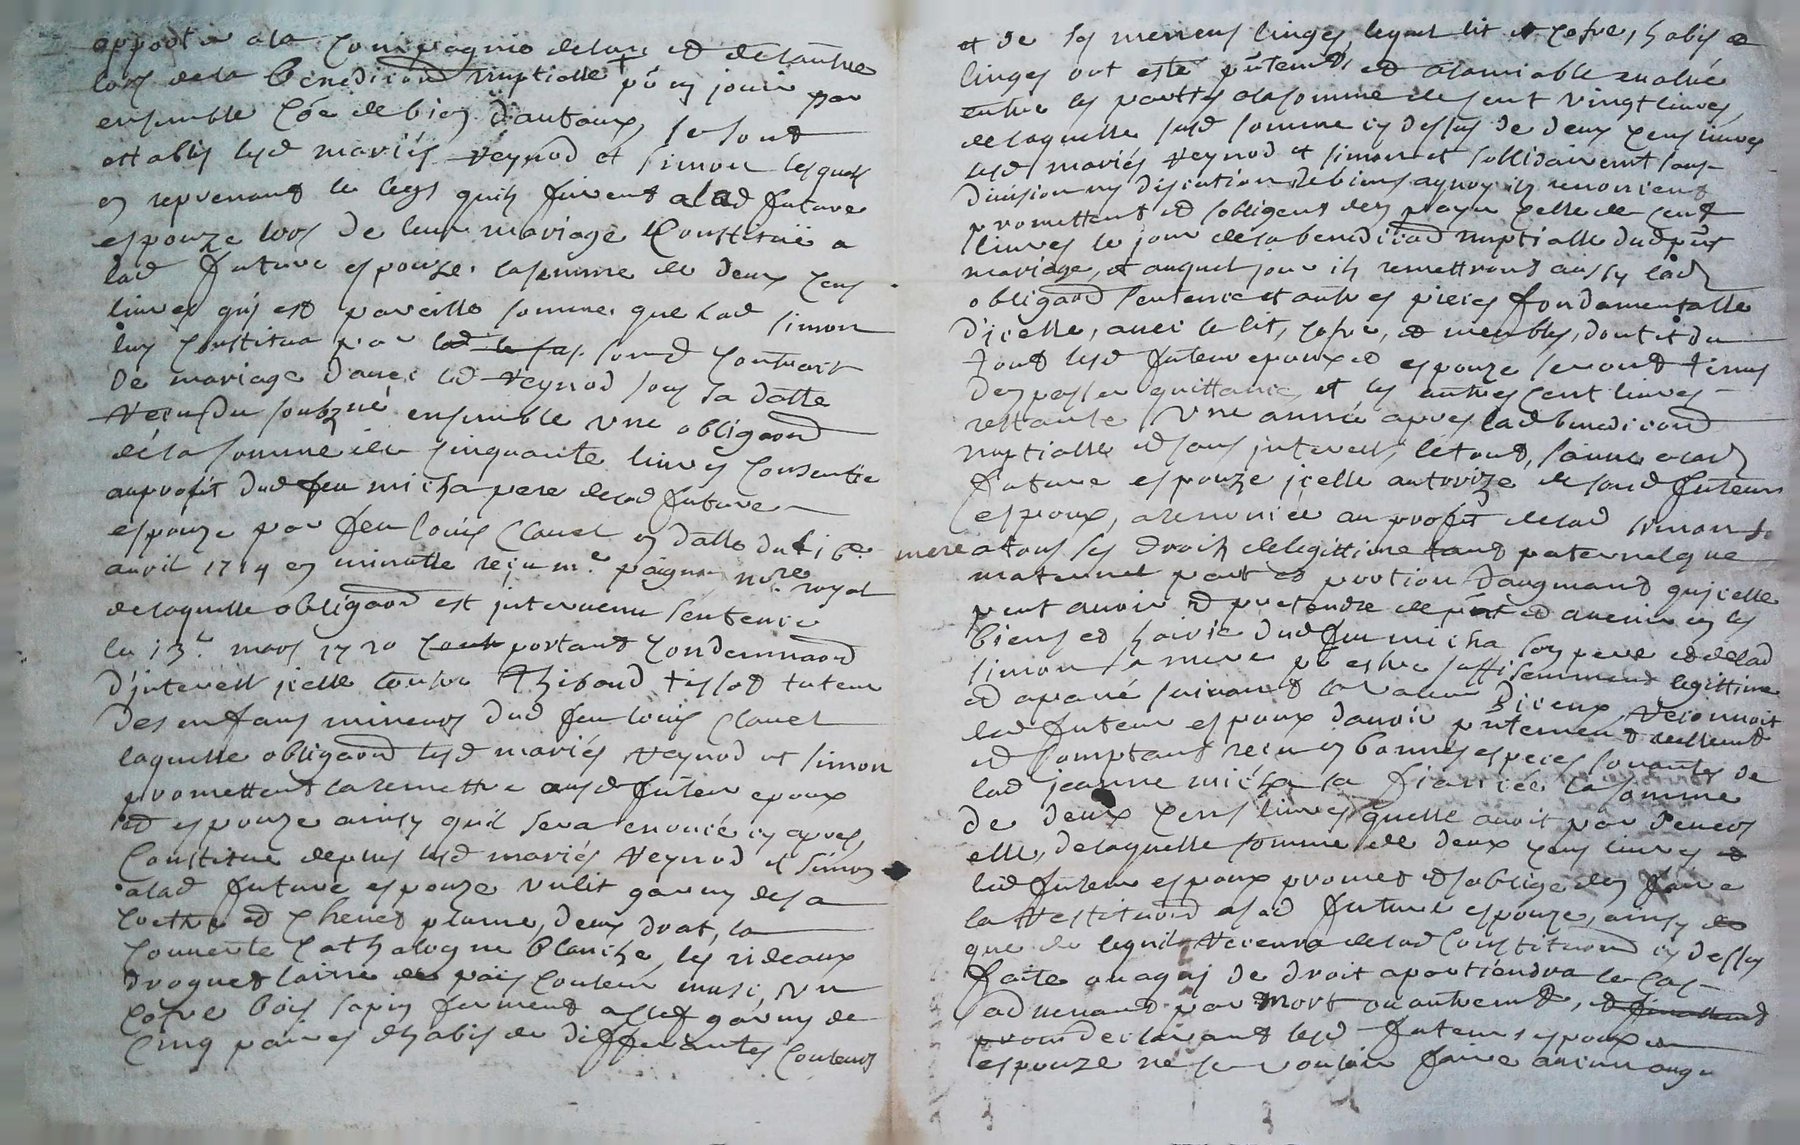 apporter a la Compagnie de lun et de lautre
lors de la benediction nuptialle pour en jouir par
ensemble de biens dautaux, se sont
establis lesd mariés Reynod et Simon lesquels
en reprenant le legs quils firent a lad future
espouze lors de leur mariage Constitué a
lad future espouze la somme de deux cens
livres qui est pareille somme que lad Simon
luy constitua par sond contract
de mariage davec led Reynod sous sa datte
Receu du soubzné ensemble une obligaond
de la somme de cinquante livres consentie
au profit dud feu micha pere de lad future
espouze par feu Louis Clavel en datte du 16e
avril 1714 en minutte reçu me paignon nore royal
de laquelle obligaond est intervenu sentence
le 13e mars 1720 portant condemnaond
dinterest icelle contre Thibaud tissot tuteur
des enfans mineurs dud feu Louis Clavel
laquelle obligaond lesd mariés Reynod et Simon
promettent la remettre ausd futeur epoux
et espouze ainsy quil sera enoncé cy apres,
Constitue deplus lesd mariés Reynod et Simon
a lad future espouze un lit garny de sa
coettre et chevet plume, deux drat, la
couverte Cathalogne blanche, les rideaux
droguet laine de païs couleur musc, un
cofre bois sapin fermant a clef garny de
cinq paires dhabis de differantes couleurs
et de ses meneus linges, lequel lit et cofre, habis et
linges ont esté pntemt, et alamiable evalué
entre les partties a la somme de cent vingt livres
de laquelle susd somme cy dessus de deux cens livres
lesd mariés Reynod et Simon et sollidairement sans
division ny discution de biens a quoy ils renoncent
promettent et sobligent den payer celle de cent
livres le jour de la benedicaod nuptialle dud pnt
mariage, et auquel jour ils remettront aussy lad
obligaond sentence et autres pieces fondamentalle
dicelle, avec le lit, cofre, et meubles, dont et du
tout lesd futeur epoux et espouze seront tenus
den passer quittance et les autres cent livres
restante une année apres lad benedicaond
nuptialle et sans interest, le tout, lad
future espouze icelle authorizé de sond futeur
espoux, a renoncé au profit de lad Simon sa
mere a tous ses droits de legittime tant paternel que
maternel part et portion daugmand qu icelle
peut avoir et pretendre de pnt et avenir en les
biens et hoirie dud feu micha son pere et de lad
Simon sa mere pr estre suffisemment legittimé
et apané suivant la valeur diceux Reconnoit
led futeur espoux davoir pntement reellement
et comptant receu en bonnes especes sonantes de
lad jeanne micha sa fiancée la somme
de deux cens livres quelle avoit par devers
elle, de laquelle somme de deux cens livres
led futeur espoux promet et soblige den faire
la Restituond a sad future espouze, ainsy
que de ce quil Recevra de lad constituaond cy dessus
faite ou a qui de droit apartiendra le cas
advenant par mort ou autremt,
declairant lesd futeurs espoux et
espouze ne se vouloir faire aucun augn